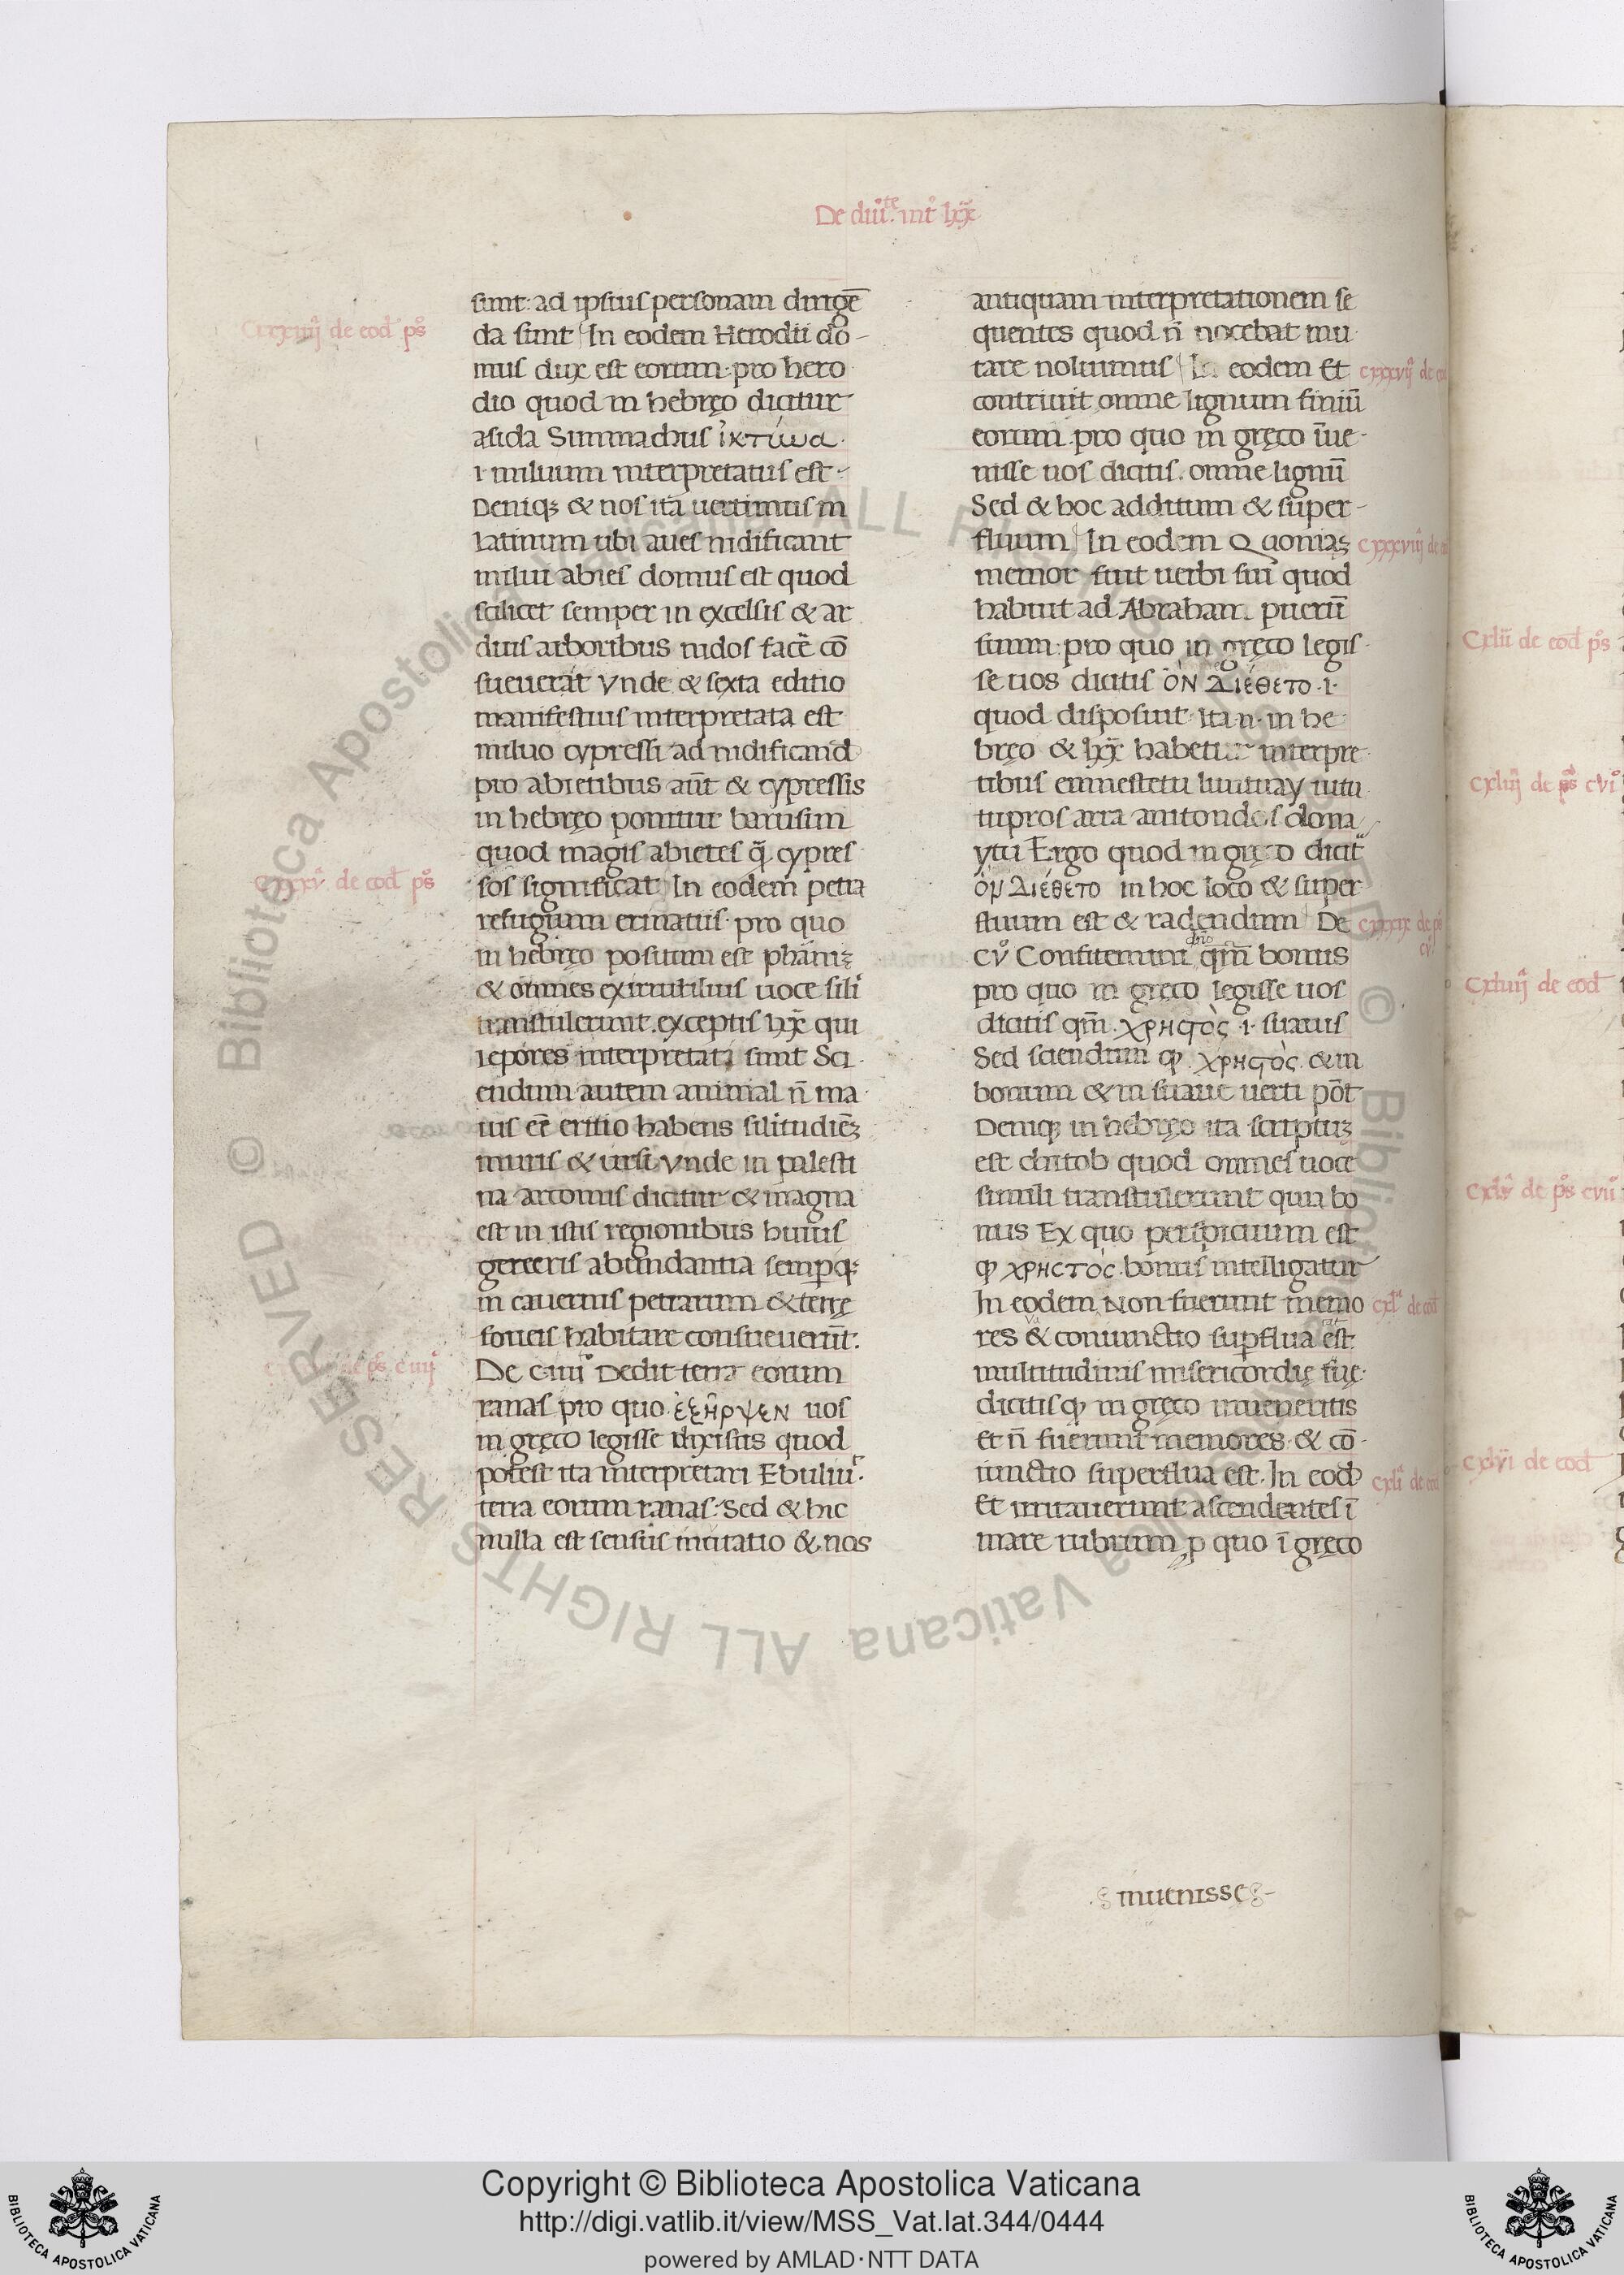 De diu̅.te int̅ lxx
sunt: ad ipsius personam dirige̅
da sunt In eodem Herodii do-
mus dux est eorum: pro hero
dio quod in hebręo dicitur
asida Summachus ἰκτίωα.
i miluum interpretatus est.
Deniq; & nos ita uertimus in
Latinum ubi aues nidificant
milui abies domus est quod
scilicet semper in excelsis & ar
duis arboribus nidos face̅ co̅
sueuerat Vnde & sexta editio
manifestius interpretata est
miluo cypressi ad nidificand
pro abietibus au̅t & cypressis
in hebręo ponitur barusim
quod magis abietes q̅ cypres
sos significat In eodem petra
refugium erinatiis pro quo
in hebręo positum est
& omnes uoce sili
transtulerunt. exceptis lxx qui
lepores interpretati sunt Sci
endum autem animal n̅ ma
ius ee̅ eritio habens silitudie̅
muris & ursi Vnde in palesti
na arcomis dicitur & magna
est in istis regionibus huius
genecris abundantia semp q;
in cauernis petrarum & terrę
foueis habitare consueueru̅t.
De ciiii° Dedit terra eorum
ranas pro quo ἐξῆρψεν uos
in gręco legisse dixistis quod
potest ita interpretari Ebuliu̅t.
terra eorum ranas: Sed & hic
nulla est sensus mutatio & nos
antiquam interpretationem se
quentes quod n̅ nocebat mu
tare noluimus In eodem Et
contriuit omne lignum finiu̅
eorum. pro quo in gręco i̅ue-
nisse uos dicitis. omne lignu̅
Sed & hoc additum & super-
fluum In eodem Quonia;
memor fuit uerbi sui quod
habuit ad Abraham pueru̅
suum: pro quo in gręco legis
se uos dicitis ὃΝ ΔΙέθετο .i.
quod disposuit ita n. in he
bręo & lxx habetur interpre
tibus
Ergo quod in gręco dicit̅
ὃν Διέθετο in hoc loco & super
fluum est & radendum De
cv° Confitemini dn̅o qm̅ bonus
pro quo in gręco legisse uos
dicitis qm̅. χρηστὸς .i. suauis
Sed sciendum q̅ χρηστὸς. & in
bonum & in suaue uerti po̅t
Deniq; in hebręo ita scriptu;
est chitob quod omnes uoce
simili transtulerunt quia bo
nus Ex quo perspicuum est
q̅ χρηστὸς. bonus intelligatur
In eodem Non fuerunt memo
res & coniunctio supflua est
multitudinis misericordię tuę
dicitis q̅ in gręco inueneritis
et n̅ fuerunt memores & co̅
iunctio superflua est. In eod
Et irritauerunt ascendentes i̅
mare rubrum p quo i̅ gręco
inuenisse
cxxxiiij de eod ps̅
cxxxv de eod ps̅
de ps̅ ciiij
cxxxvij de
cxxxviij de
cxxxix de ps̅
cv
cxl de eod
cxli de eod
cxlii de eod ps̅
cxliij de ps̅ cvi
cxliiij de eod
cxlv de ps̅ cvii
cxlvi de eod
Copyright © Biblioteca Apostolica Vaticana
http://digi.vatlib.it/view/MSS_Vat.lat.344/0444
powered by AMLAD·NTT DATA
BIBLIOTECA APOSTOLICA VATICANA
BIBLIOTECA APOSTOLICA VATICANA
© Biblioteca Apostolica Vaticana ALL RIGHTS RESERVED © Biblioteca Apostolica Vaticana ALL RIGHTS RESERVED